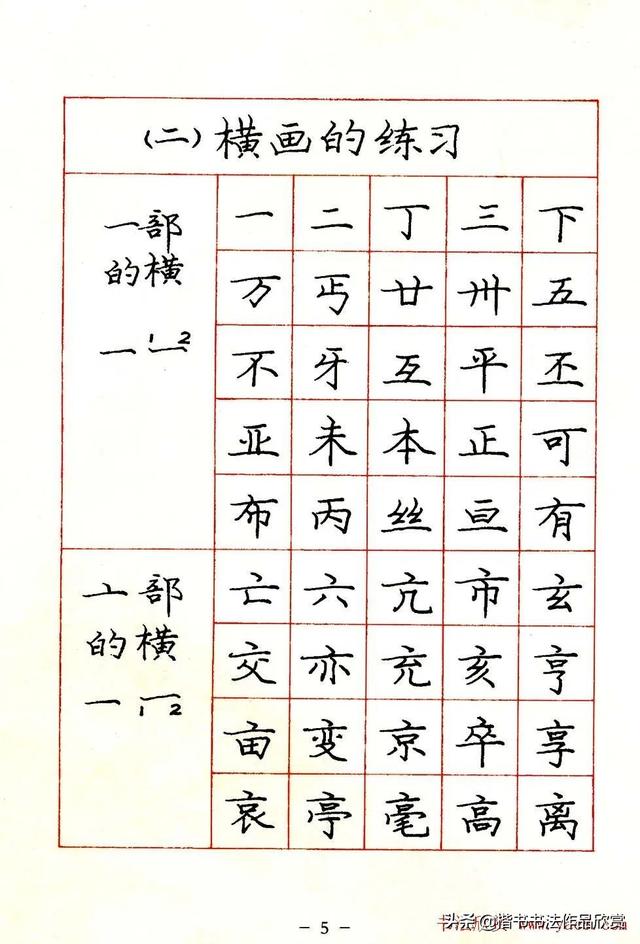 (二)横画的练习
一部
的横
一 1 2 一
一 二 丁 三 下
万 丐 廿 卅 五
不 牙 互 平 丕
亚 未 本 正 可
布 丙 丝 亘 有
亠部
的横
一 1 一 2
亡 六 亢 市 玄
交 亦 充 亥 亨
亩 变 京 卒 享
哀 亭 毫 高 离
- 5 -
头条@楷书书法作品欣赏